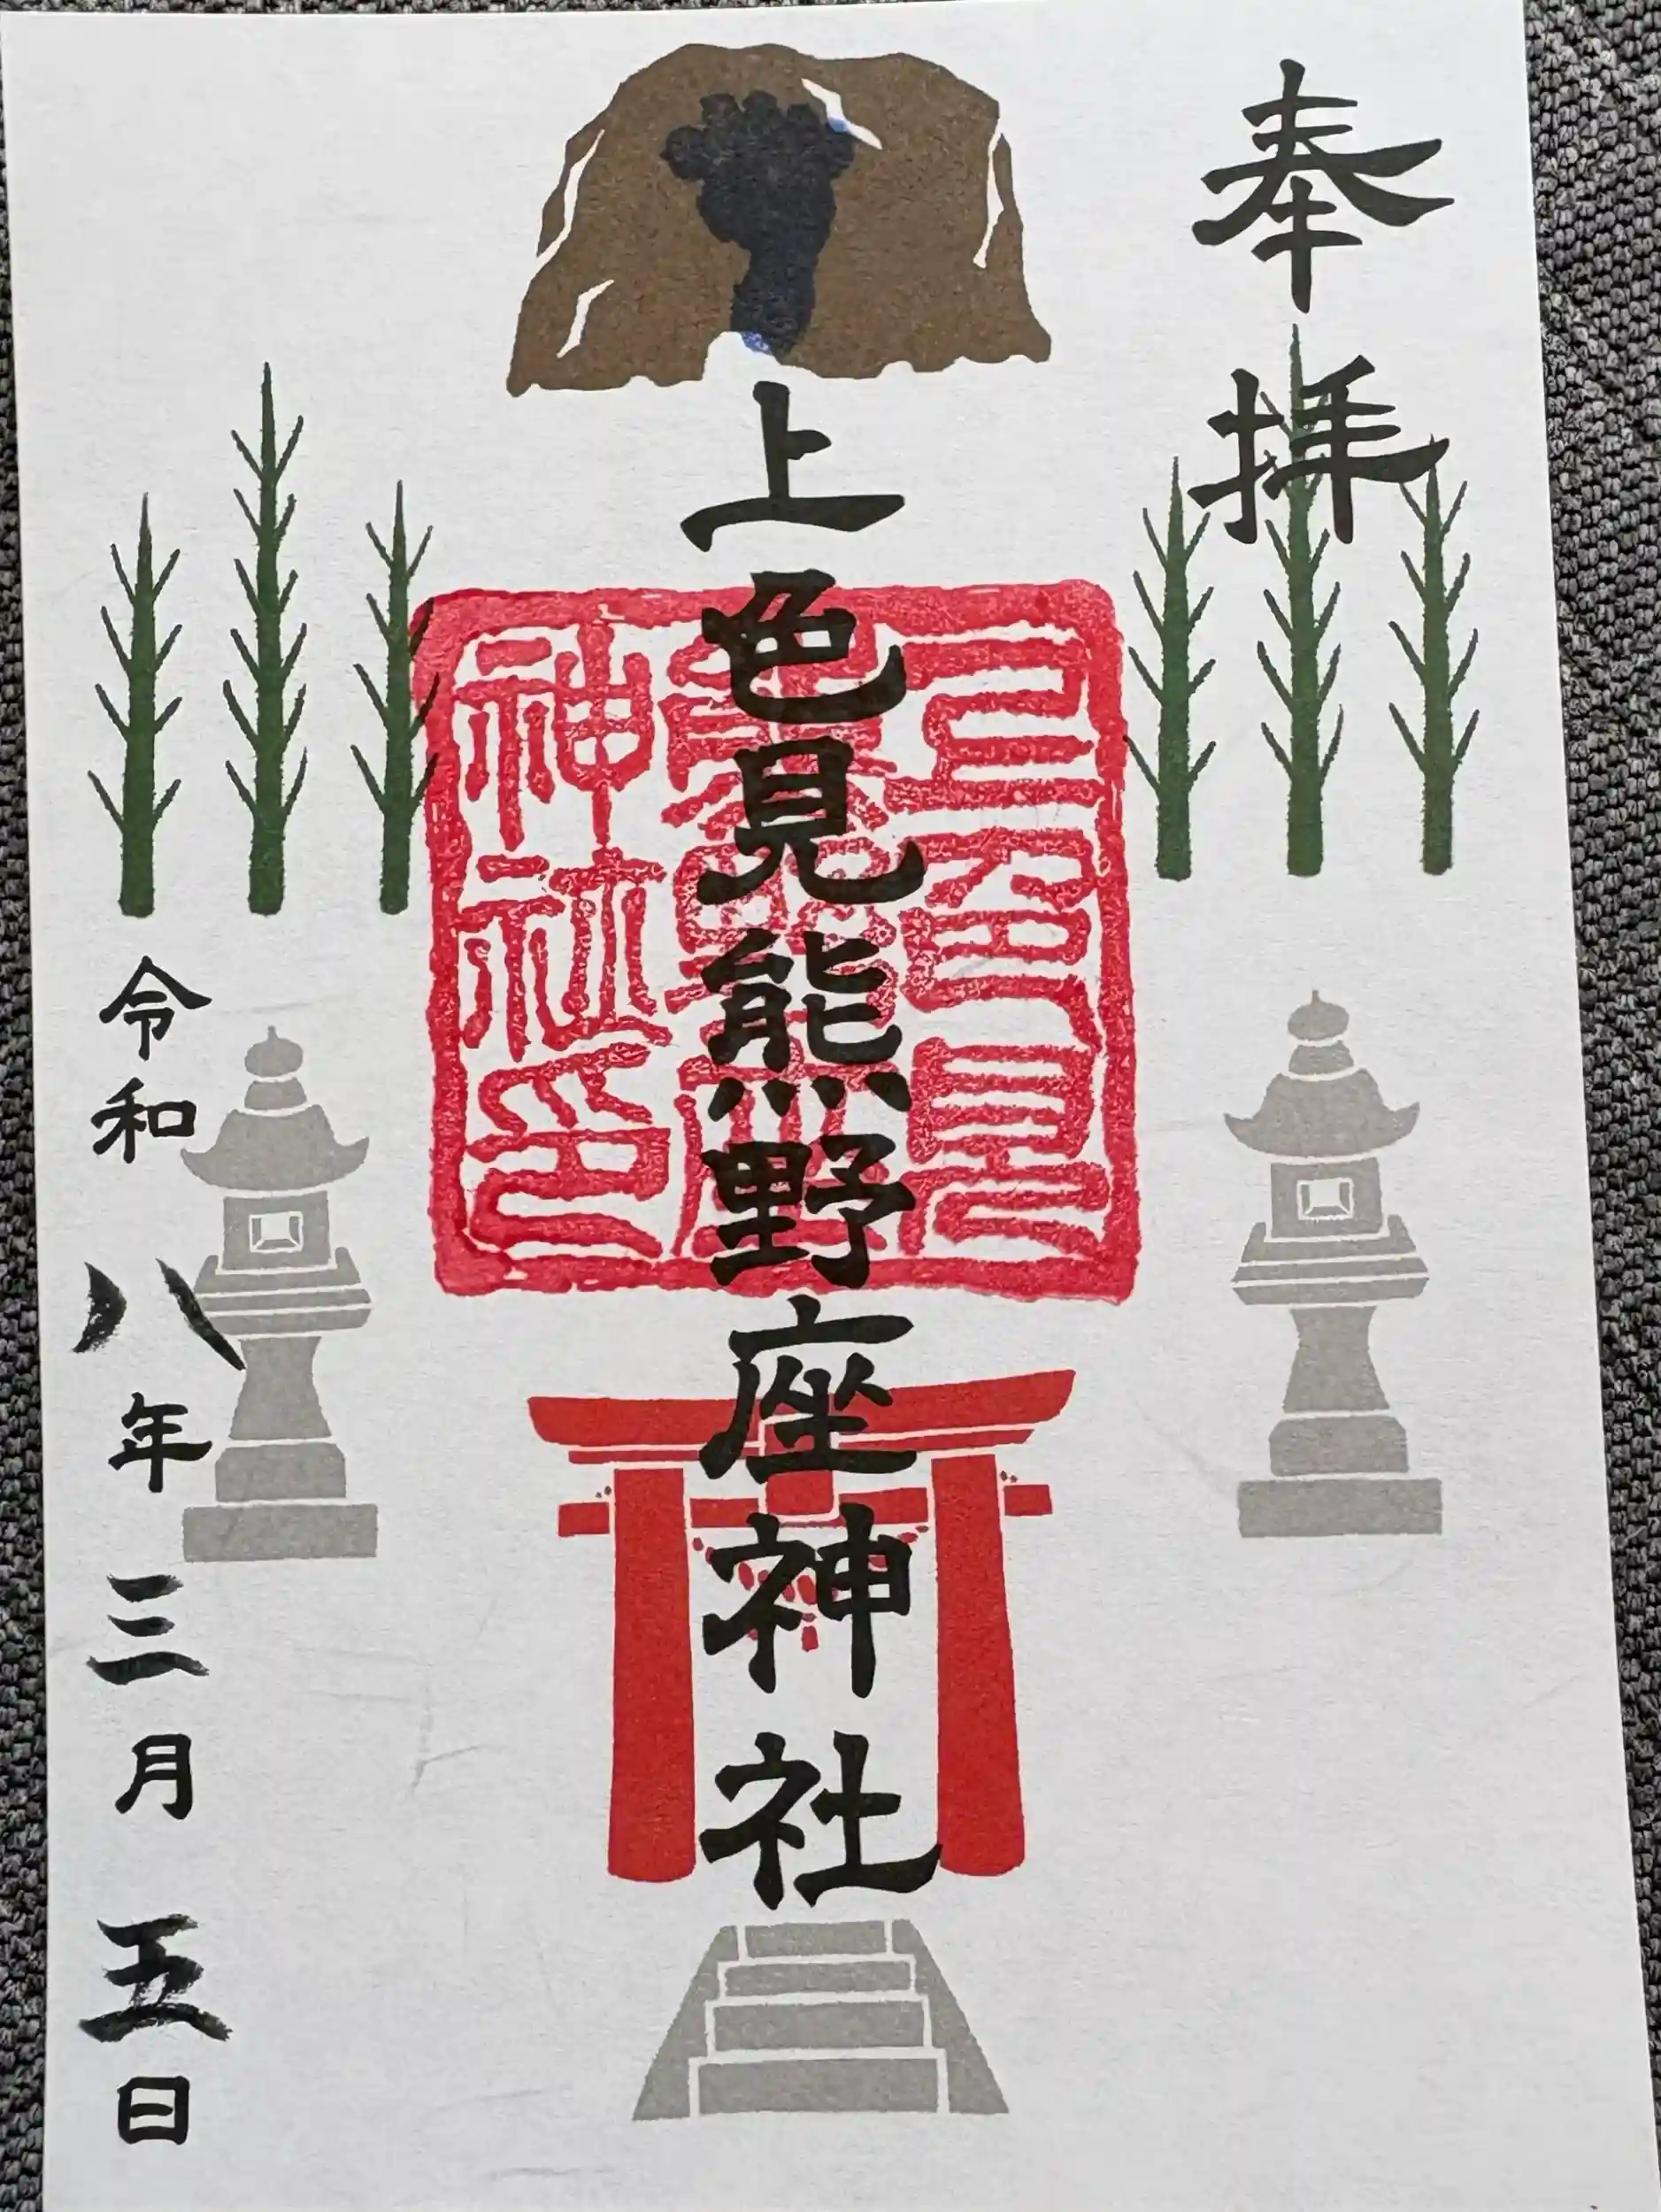 奉拝
上色見熊野座神社
上色見
熊野座
神社印
令和八年三月五日